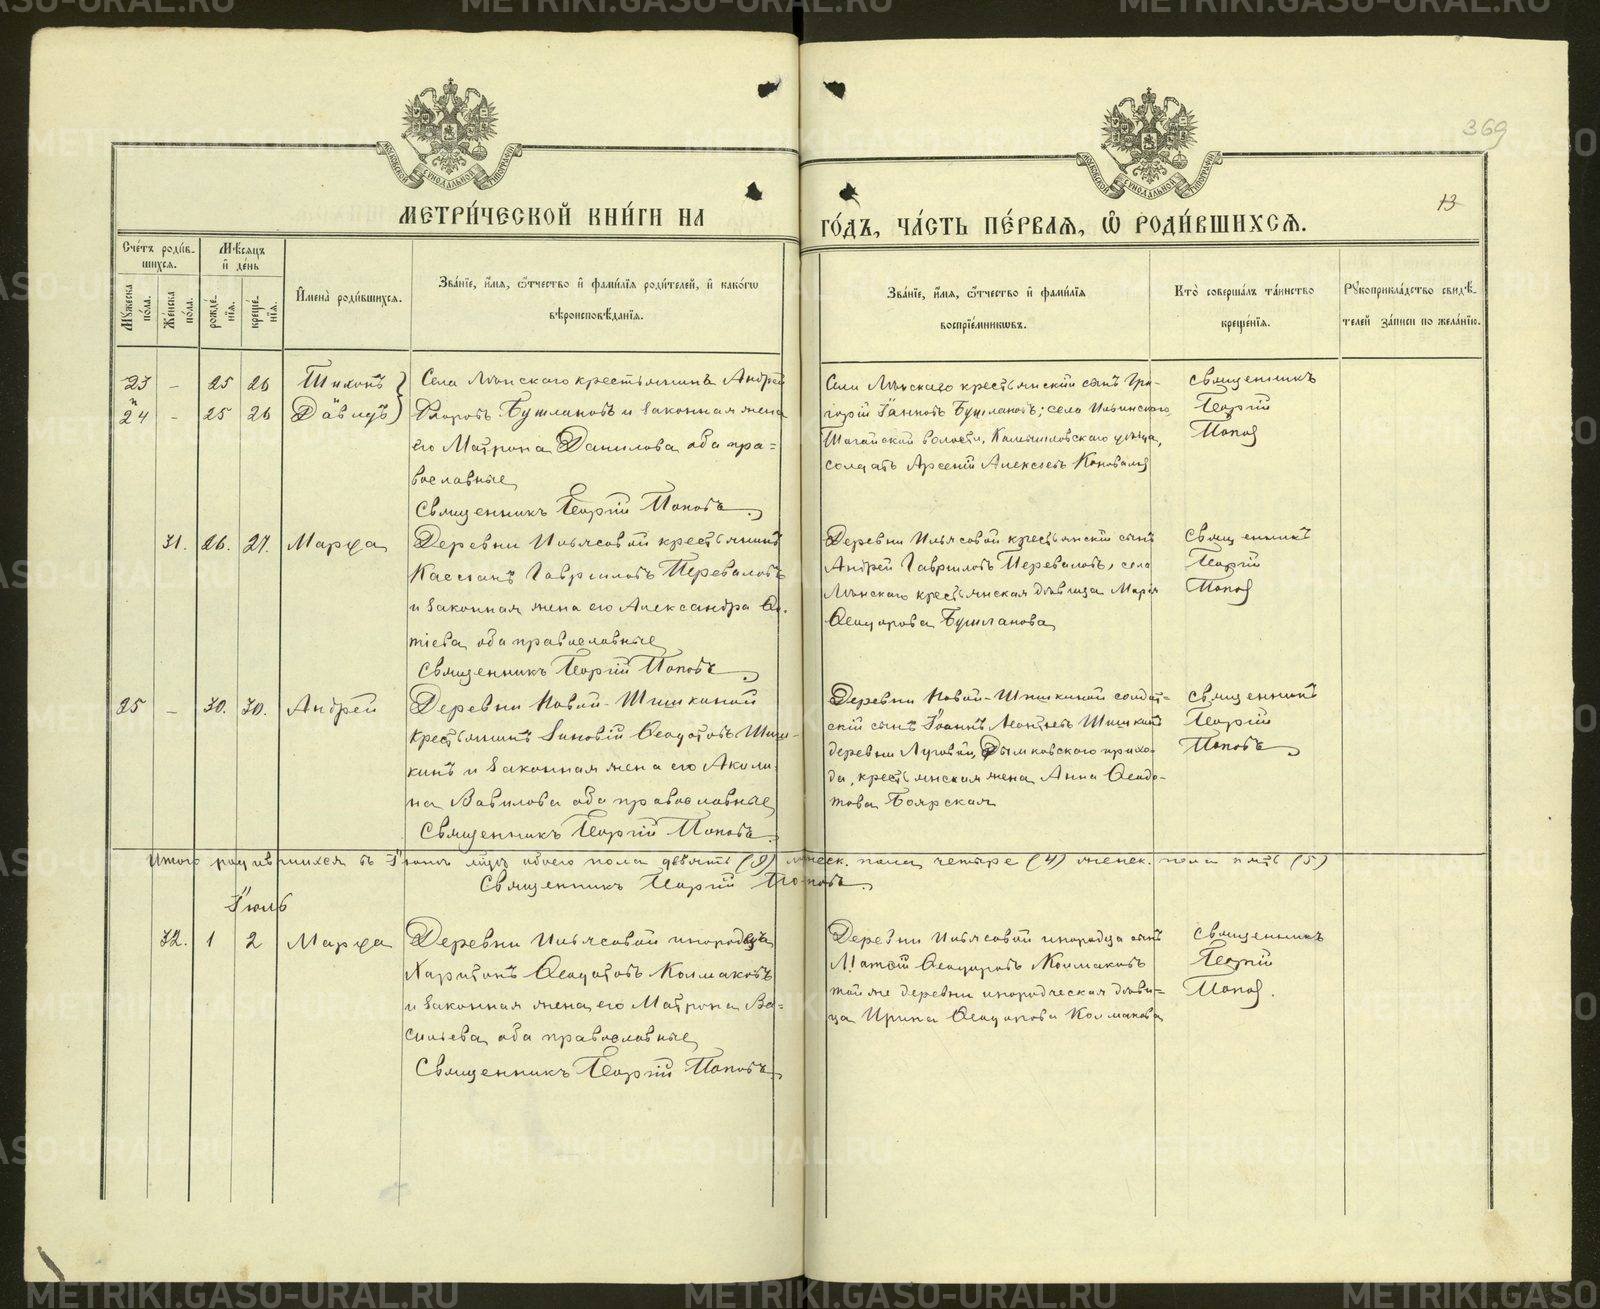 369
13
МЕТРИ́ЧЕСКОЙ КНИ́ГИ НА
ГО́ДЪ, ЧА́СТЬ ПЕ́РВАѦ, Ѡ҆ РОДИ́ВШИХСѦ.
Сче́тъ роди́в-
шихсѧ.
Мꙋ́жеска по́ла.
Же́нска по́ла.
Мѣ́сѧцъ
и҆ де́нь
рожде́нїѧ.
креще́нїѧ.
И҆мена̀ роди́вшихсѧ.
Зва́нїе, и҆́мѧ, ѻ҆́тчество и҆ фами́лїѧ роди́телей, и҆ како́гѡ
вѣроисповѣ́данїѧ.
Зва́нїе, и҆́мѧ, ѻ҆́тчество и҆ фами́лїѧ
воспрїе́мникѡвъ.
Кто̀ соверша́лъ та́инство
креще́нїѧ.
Рꙋкоприкла́дство свидѣ́-
телей за́писи по жела́нїю.
23 – 25 26 Тихонъ
и
24 – 25 26 Давидъ
крестьянинъ Андрей
Бушлановъ и законная жена
его Матрона Данилова оба пра-
вославные
Священникъ Георгій Поповъ.
крестьянскій сынъ Гри-
горій Бушлановъ; села Ильинскаго,
волости, Камышловскаго уѣзда,
солдатъ Арсеній Алексѣевъ
Священникъ
Георгій
Попов
31. 26. 27. Марѳа
Деревни Ильясовой крестьянинъ
Кассіанъ Гавриловъ Переваловъ
и законная жена его Александра Фо-
тіева оба православные
Священникъ Георгій Поповъ.
Деревни Ильясовой крестьянскій сынъ
Андрей Гавриловъ Переваловъ, села
крестьянская дѣвица Марія
Ѳеодорова Бушланова
Священникъ
Георгій
Попов
25 – 30. 30. Андрей
Деревни Новой-Шишкиной
крестьянинъ Зиновій Ѳедотовъ Шиш-
кинъ и законная жена его Акили-
на Вавилова оба православные
Священникъ Георгій Поповъ.
Деревни Новой-Шишкиной солдат-
скій сынъ Іоаннъ Леонтьевъ Шишкинъ
деревни Луговой, Дымковскаго прихо-
да, крестьянская жена Анна Ѳеодо-
това Боярская
Священникъ
Георгій
Поповъ.
Итого родившихся въ Іюнѣ лицъ обоего пола девять (9) мужеск. пола четыре (4) женск. пола пять (5)
Священникъ Георгій Поповъ.
Іюль
32. 1 2 Марѳа
Деревни Ильясовой инородецъ
Харитонъ Ѳедотовъ Колмаковъ
и законная жена его Матрона Ва-
сильева, оба православные
Священникъ Георгій Поповъ.
Деревни Ильясовой инородца сынъ
Ѳеодоровъ Колмаковъ
той же деревни инородческая дѣви-
ца Ирина Ѳеодорова Колмакова
Священникъ
Георгій
Попов.
METRIKI.GASO-URAL.RU